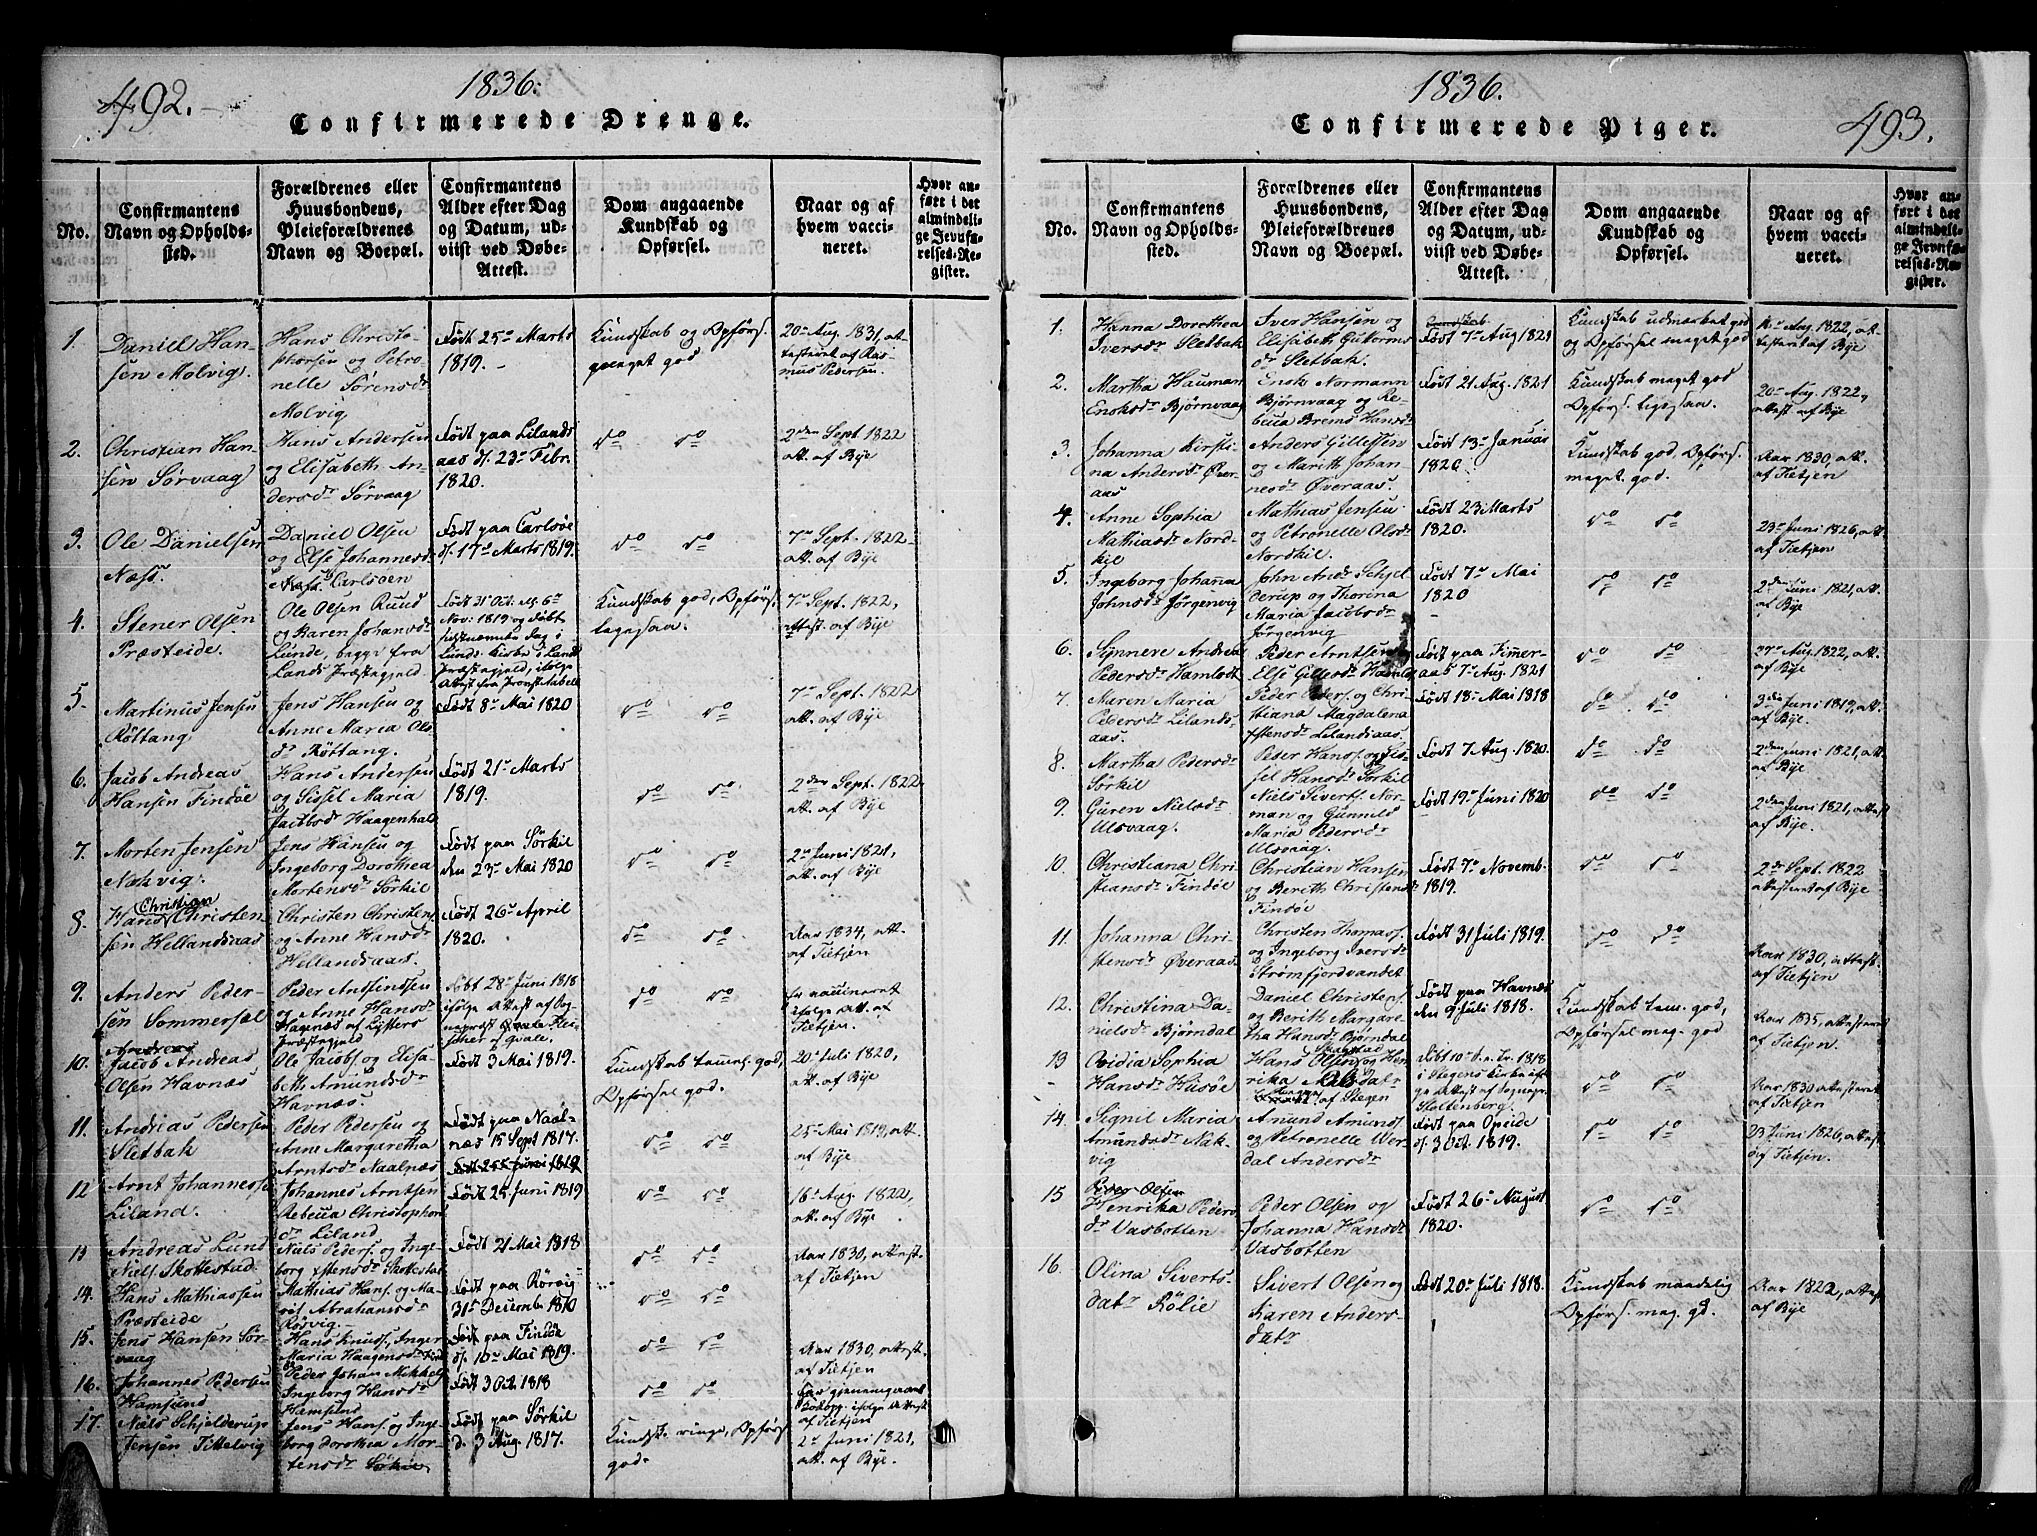 492.
1836.
Confirmerede Drenge.
No.
Confirmantens
Navn og Opholds-
sted.
Forældrenes eller
Huusbondens,
Pleieforældrenes
Navn og Boepæl.
Confirmantens
Alder efter Dag
og Datum, ud-
viist ved Døbe-
Attest.
Dom angaaende
Kundskab og
Opførsel.
Naar og af
hvem vacci-
neret.
Hvor an-
ført i det
almindeli-
ge Jevnfø-
relses-Re-
gister.
1.
Daniell Han-
sen Molvig.
Hans Christo-
phersen og Petro-
nelle Sörensdr
Molvig
Født 25de Marts
1819.
Kundskab og Opførs.
meget god
20de Aug. 1831, at-
testeret af Ras-
mus Pedersen.
2.
Christian Han-
sen Sørvaag
Hans Andersen
og Elisabeth An-
dersdr Sørvaag
Født paa Lilands-
aas d. 23de Febr.
1820.
do do
2den Sept. 1822
att. af Bye
3.
Ole Danielsen
Næss.
Daniel Olsen
og Else Johannesdr
Carlsöen
Født paa Carlsöe
d. 17de Marts 1819.
do do
7de Sept. 1822
att. af Bye
4.
Stener Olsen
Præsteide.
Ole Olsen Ruud
og Karen Johansdr
Lunde, begge fra
Lands Præstegjeld
Født 31 Oct. el. 6te
Nov: 1819 og døbt
sidstnævnte dag i
Lunds Kirke i Lands
Præstegjeld, ifølge
Attest fra Provst Aabell
Kundskab god, Opførs.
ligesaa.
7de Sept. 1822,
attest. af Bye
5.
Martinus Jensen
Röttang
Jens Hansen og
Anne Maria Ols-
dr Röttang.
Født 8de Mai 1820
do do
7de Sept. 1822
att. af Bye
6.
Jacob Andreas
Hansen Findöe
Hans Andersen
og Sissel Maria
Jacobsdr Haagenhals
Født 21de Marts
1819.
do do
2den Sept. 1822
att. af Bye
7.
Morten Jensen
Nakvig.
Jens Hansen og
Ingeborg Dorothea
Mortensdr Sørkil
Født paa Sörkil
den 23de Mai 1820
do do
2de Juni 1821,
att. af Bye
8.
Christian
Hans Christen-
sen Hellandsaas
Christen Christens.
og Anne Hansdr
Hellandsaas.
Født 26de April
1820.
do do
Aar 1834, att.
af Tietjen
9.
Anders Peder-
sen Sommersæl
Peder Andfindsen
og Anne Hansdr
Hagenæs af Lysters
Præstegjeld
Døbt 28de Juni 1818
ifølge Attest af Sog-
nepræst
do do
Er vaccineret
ifølge att. af
Tietjen.
10.
Andreas
Jacob Andreas
Olsen Havnæs
Ole Jacobs. og Elisa-
beth Amundsdr
Havnæs.
Født 3 Mai 1819.
Kundskab temmel. god,
Opførsel god.
20de Juli 1820,
att. af Bye
11.
Andreas Pedersen
Sletbak
Peder Pedersen og
Anne Margaretha
Arntsdr Naalnæs
Født paa Naal-
næs 15 Sept 1817.
Født 25de Juni 1819
do do
25de Mai 1819, att.
af Bye
12
Arnt Johannessen
Liland.
Johannes Arntsen
Rebecca Christophers-
dr Liland
Født 25 Juni 1819
do do
16de Aug. 1822,
att. af Bye
13
Andreas Lund
Niels. Skottestad.
Niels Peders. og Inge-
borg Estensdr Skottestad
Født 21 Mai 1818
do do
Aar 1830, attest.
af Tietjen
14.
Hans Mathiassen
Præsteide
Mathias Hans. og Ma-
rit Abrahamsdr
Rörvig.
Født paa Rörvig
31de Decemb 1810
do do
15.
Jens Hansen Sör-
vaag
Hans Knuds., Inger
Maria Haagensdr
Født paa Findöe
d. 10de Mai 1819.
do do
Aar 1830, attest.
af Tietjen
16.
Johannes Pedersen
Hamsund
Peder Johan Mikkels.
Ingeborg Hansdr
Hamsund
Født 3 Oct. 1818
do do
Har gjennemgaaet
Kokopp. ifølge Attest
af Tietjen
17.
Niels Schjelderup
Jensen Tittelvig
Jens Hans. og Inge-
borg Dorothea Mor-
tensdr Sørkil
Født paa Sørkil
d. 3 Aug. 1817.
Kundsk. ringe, Opførs.
god.
2de Juni 1821,
att. af Bye.
1836.
493.
Confirmerede Piger.
No.
Confirmantens
Navn og Opholds-
sted.
Forældrenes eller
Huusbondens,
Pleieforældrenes
Navn og Boepæl.
Confirmantens
Alder efter Dag
og Datum, ud-
viist ved Døbe-
Attest.
Dom angaaende
Kundskab og
Opførsel.
Naar og af
hvem vacci-
neret.
Hvor an-
ført i det
almindeli-
ge Jevnfø-
relses-Re-
gister.
1.
Hanna Dorothea
Iversdr Sletbak
Iver Hansen og
Elisabeth Guttorms-
dr Sletbak.
Kundskab
Født 7de Aug 1821
Kundskab udmærket god
og Opførsel meget god
16de Aug. 1822, at-
testeret af Bye
2.
Martha Hauman
Enoksdr Björnvaag
Enok Normann
Björnvaag og Re-
becca Brems Hansdr
Født 21 Aug. 1821
Kundskab meget god
Opførs. ligesaa.
20de Aug. 1822,
attest af Bye
3.
Johanna Kirsti-
na Andersdr Över-
aas
Anders Gillessen
og Marith Johan-
nesdr Överaas.
Født 13de Januar
1820
Kundskab god, Opførs.
meget god.
Aar 1830, att.
af Tietjen
4.
Anne Sophia
Mathiasdr Nord-
kil
Mathias Jensen
og Petronelle Olsdr
Nordkil.
Født 23 Marts
1820.
do do
23de Juni 1826, att.
af Tietjen
5.
Ingeborg Johanna
Johnsdr Jörgenvig
John Andr. Schjel-
derup og Thorina
Maria Jacobsdr
Jörgenvig
Født 7de Mai
1820
do do
2den Juni 1821, att.
af Bye
6.
Synneve Andrea
Pedersdr Hamlott
Peder Arntsen og
Else Gillesdr Hamlot
Født paa Fimer-
aas 7de Aug. 1821
do do
27de Aug 1822, att.
af Bye
7.
Maren Maria
Pedersdr Lilands-
aas.
Peder Peders. og Chri-
stiana Magdalena
Estensdr Lilandsaas.
Født 18de Mai 1818
do do
3die Juni 1819, att.
af Bye.
8.
Martha Pedersdr
Sørkil
Peder Hans. og Sis-
sel Hansdr Sørkil
Født 7 Aug. 1820.
do do
2den Juni 1821, att.
af Bye
9.
Guren Nielsdr
Ulsvaag.
Niels Siverts. Nor-
man og Gunnild
Maria Pedersdr
Ulsvaag.
Født 19de Juni 1820
do do
2den Juni 1821, attest.
af Bye.
10.
Christiana Chri-
stiansdr Findöe
Christian Hansen
og Berith Christensdr
Findöe
Født 7de Novemb.
1819.
do do
2de Sept. 1822
attesteret af Bye
11.
Johanna Chri-
stensdr Överaas
Christen Thomass.
og Ingeborg Iversdr
Strømfjordvandet
Født 31 Juli 1819.
do do
Aar 1830, attest.
af Tietjen
12.
Christina Da-
nielsdr Björndal
Daniel Christens.
og Berith Margare-
tha Hansdr Björndal
Født paa Havnæs
den 9 Juli 1818.
Kundskab tem. god,
Opførsel meg. god
Aar 1835, attesteret
af Tietjen.
13
Ovidia Sophia
Hansdr Husöe
Skagstad
Hans Olsen og Hen-
rika
af Stegen
Døbt 10de S. e. Tr. 1818
i Stegens Kirke ifølge
Attest af Sognepr.
Stoltenberg.
do do
Aar 1830 attesteret
af Tietjen
14.
Signil Maria
Amundsdr Nak-
vig
Amund Amunds.
og Petronelle Wer-
dal Andersdr
Født paa Opeide
d. 3 Oct. 1819.
do do
23 Juni 1826, attest.
af Tietjen.
15
Peder Olsen
Henrika Peders-
dr Vasbotten
Peder Olsen og
Johanna Hansdr
Vasbotten
Født 26de August
1820.
do do
16.
Olina Siverts-
datr Rölie
Sivert Olsen og
Karen Anders-
datr
Født 20de Juli 1818.
Kundskab maadelig
Opførs. meg. gd.
Aar 1822, attest.
af Bye